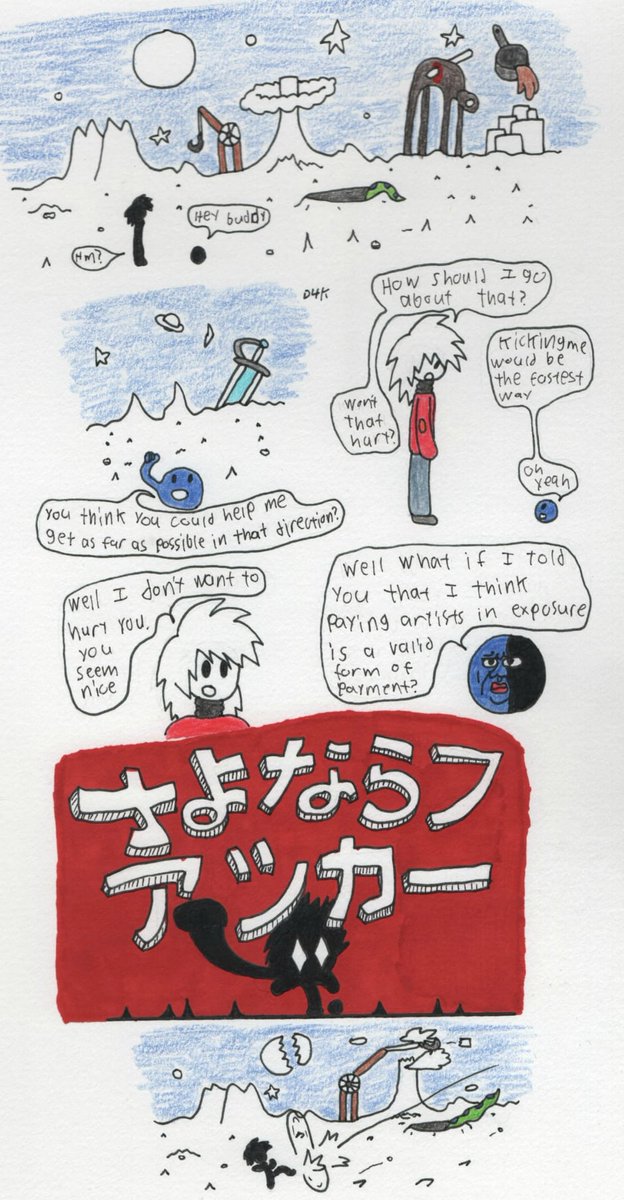 Hey buddy
Hm?
D4K
You think you could help me
get as far as possible in that direction?
How should I go
about that?
Won't
that
hurt?
Kicking me
would be
the fastest
way
oh
yeah
Well I don't want to
hurt you.
you
seem
nice
Well what if I told
you that I think
paying artists in exposure
is a valid
form of
payment?
さよならフ
アッカー